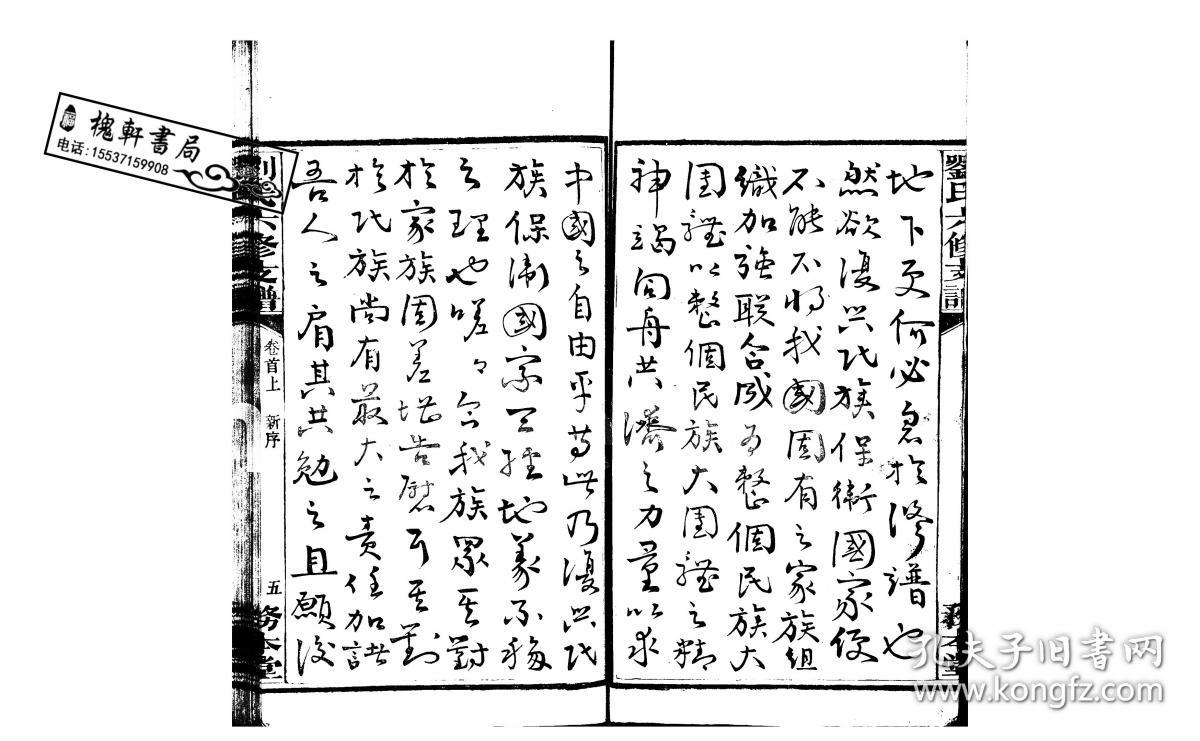 劉氏六修支譜
務本堂
地下更何必急於修譜也
然欲復興民族保衛國家便
不能不將我國固有之家族組
織加強联合成為整個民族大
團體以整個民族大團體之精
神竭同舟共濟之力量以求
中國之自由平等此乃復興民
族保衛國家天經地義不移
之理也嗟々合我族眾其對
於家族固差堪告慰耳其對
於民族尚有最大之責任加諸
吾人之肩其共勉之且願後
劉氏六修支譜
卷首上 新序
五
務本堂
槐軒書局
电话:15537159908
孔夫子旧书网
www.kongfz.com